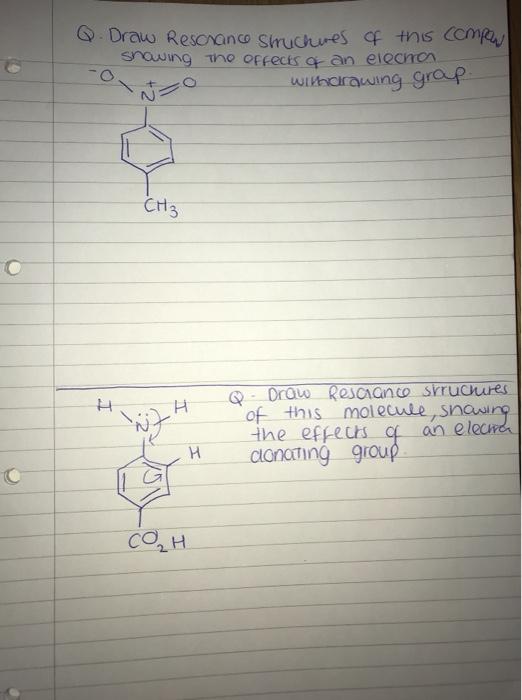 Q. Draw Resonance structures of this
showing the effects of an electron
withdrawing group.
-O
+
N
O
CH3
Q. Draw Resonance structures
of this molecule, showing
the effects of an electron
donating group.
H
N
H
H
CO2H